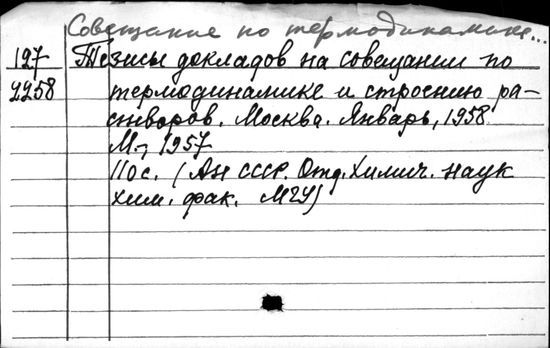 Совещание по термодинамике...
127
2258
Тезисы докладов на совещании по
термодинамике и строению ра-
створов. Москва. Январь, 1958
М., 1957
110с. (Ан СССР. Отд. Химич. наук
хим. фак. МГУ)